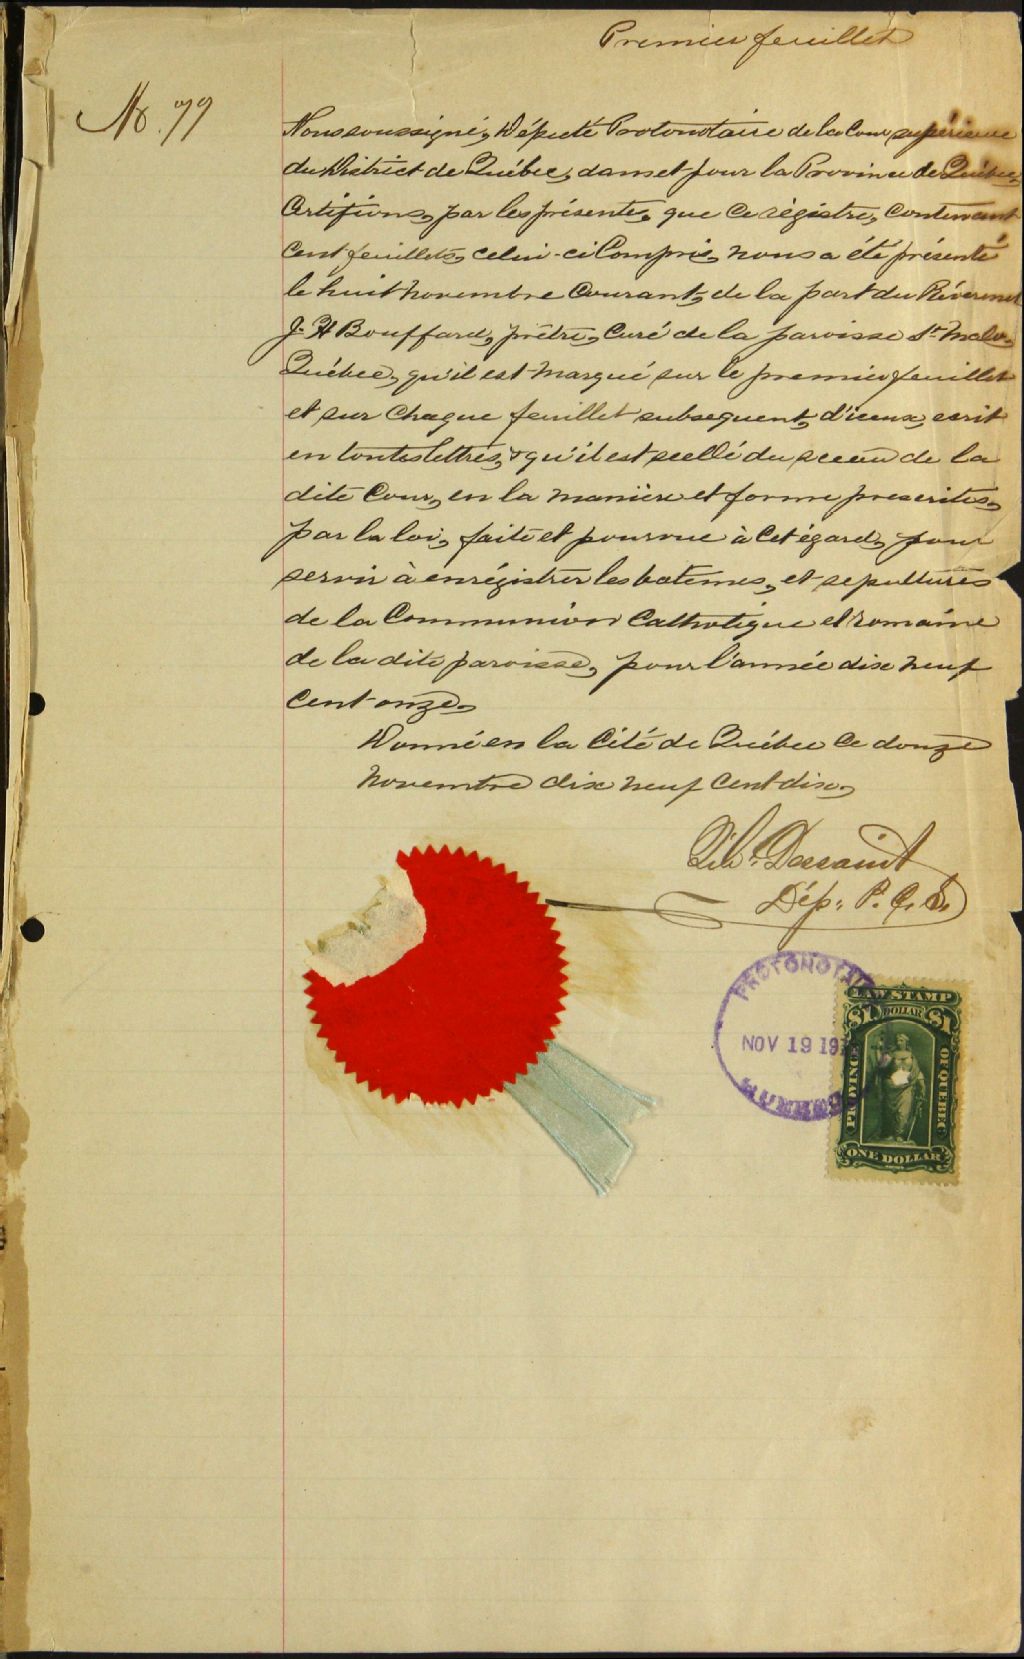 Premier feuillet
No. 79
Nous soussigné, Député Protonotaire de la Cour supérieure
du District de Québec, dans et pour la Province de Québec,
Certifions, par les présentes, que ce régistre, contenant
cent feuillets, celui-ci Compris, nous a été présenté
le huit novembre Courant, de la part du Réverend
J. H Bouffard, prêtre, Curé de la paroisse St. Malo,
Québec, qu'il est marqué sur le premier feuillet
et sur chaque feuillet subsequent, d'iceux, ecrit
en toutes lettres, & qu'il est scellé du sceau de la
dite Cour, en la manière et forme prescrites,
par la loi, faite et pourvue à cet égard, pour
servir à enrégistrer les batemes, et sepultures
de la Communion Catholique et romaine
de la dite paroisse, pour l'année dix neuf
cent onze.
Donné en la Cité de Québec ce douze
novembre dix neuf cent dix.
Dessaint
Dép. P. C. S.
PROTONOTAI
NOV 19 19
LAW STAMP
$1 DOLLAR $1
PROVINCE OF QUEBEC
ONE DOLLAR